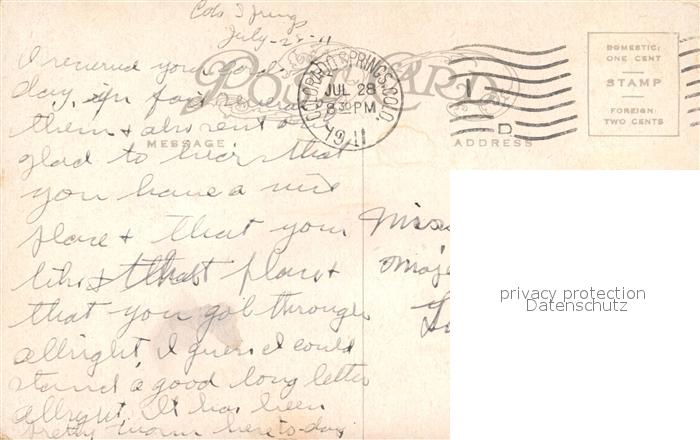 Colo Springs
July-28-11
I received your card
day, in fact several
them & also sent a
glad to hear that
you have a nice
place & that your
like that place &
that you got through
allright. I guess I could
stand a good long letter
allright. It has been
pretty warm here to-day
POST CARD
MESSAGE
COLORADO SPRINGS, COLO.
JUL 28
8 30 PM
1911
1
D
DOMESTIC:
ONE CENT
STAMP
FOREIGN:
TWO CENTS
ADDRESS
Miss
privacy protection
Datenschutz